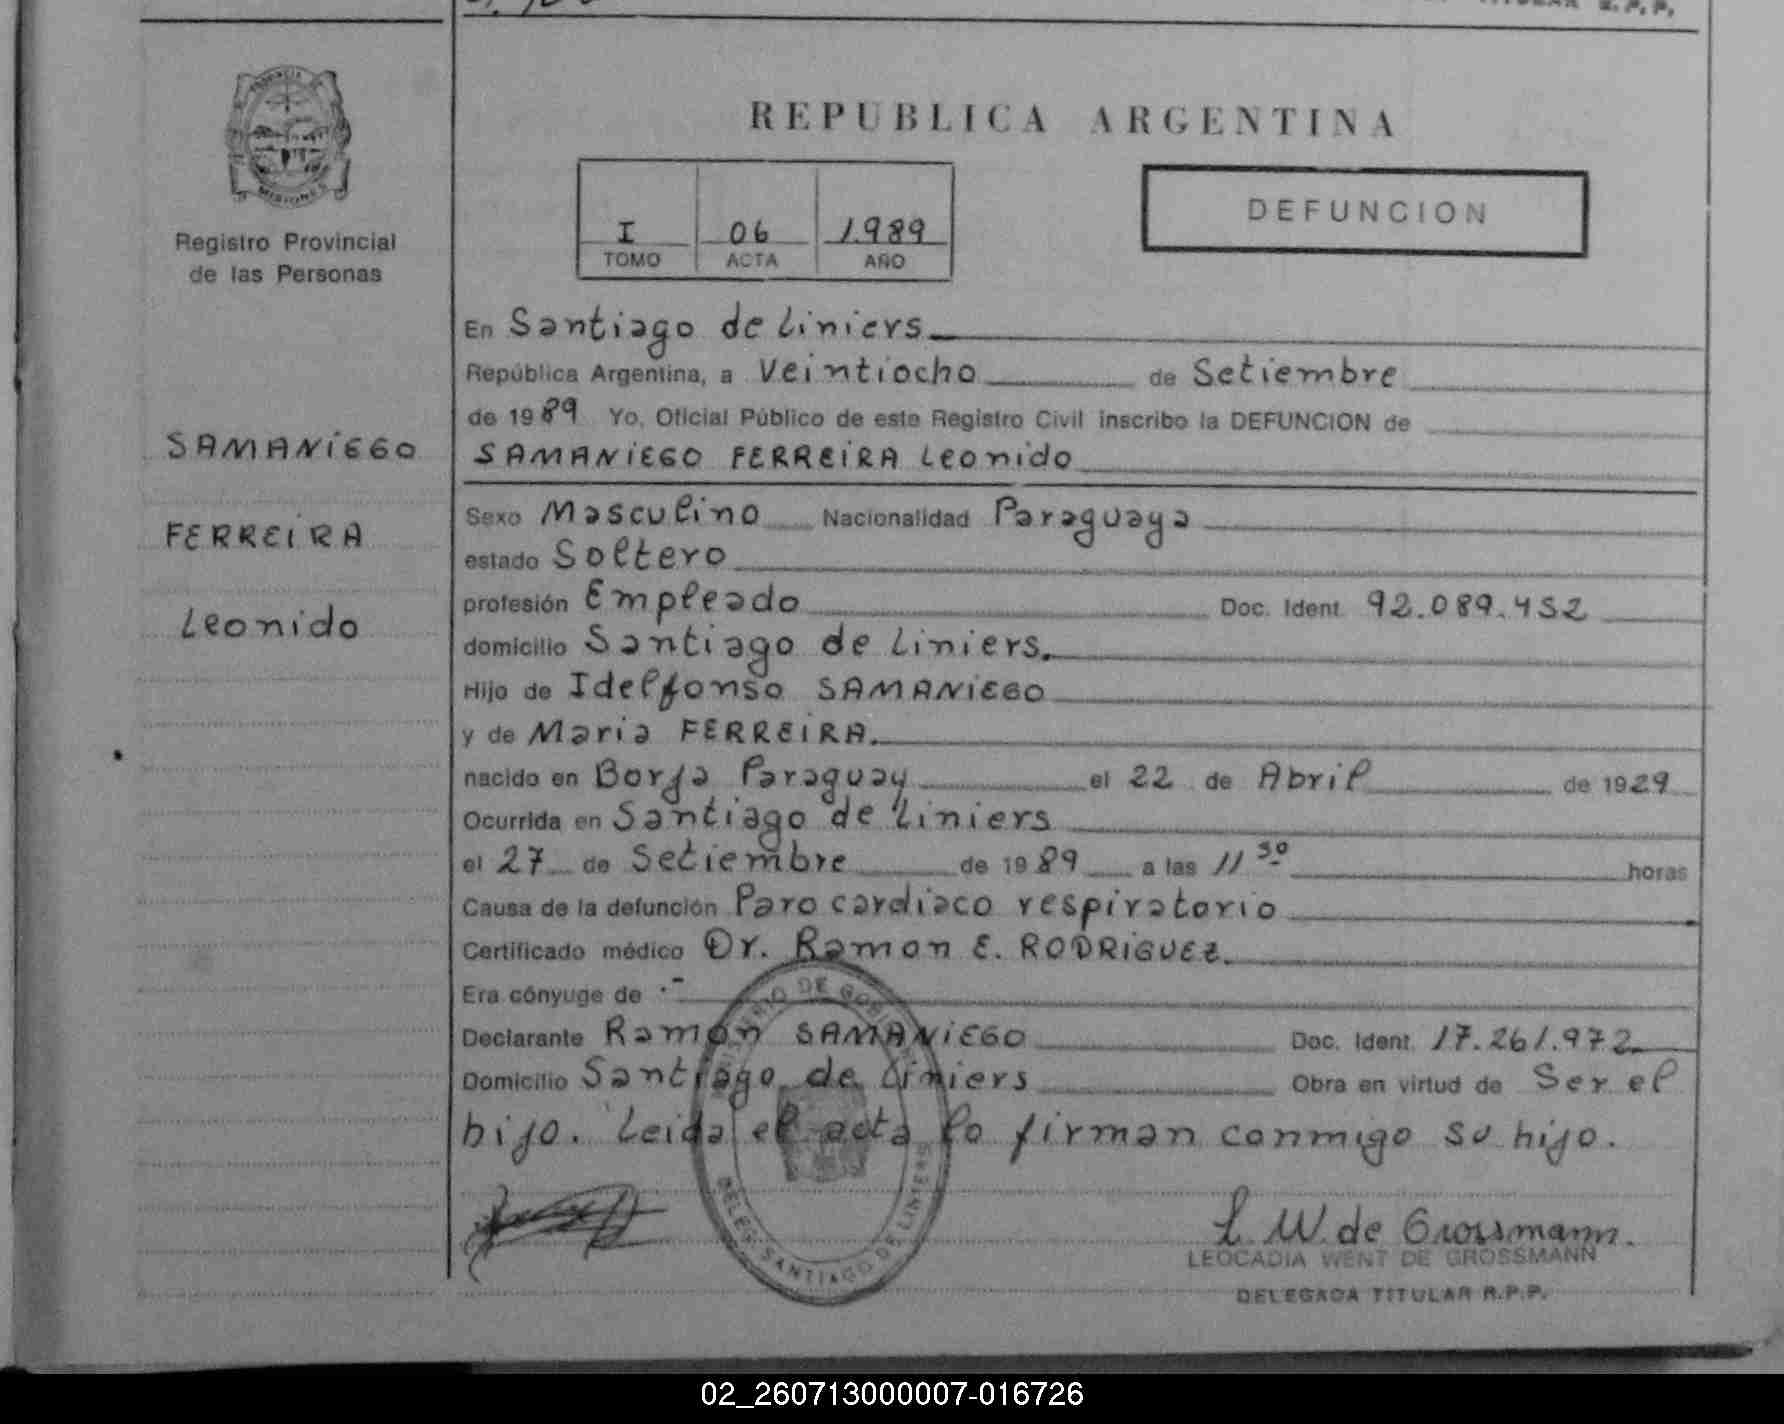 TITULAR R.P.P.
PROVINCIA
MISIONES
Registro Provincial
de las Personas
SAMANIEGO
FERREIRA
Leonido
REPUBLICA ARGENTINA
I 06 1.989
TOMO ACTA AÑO
DEFUNCION
En Santiago de Liniers
República Argentina, a Veintiocho de Setiembre
de 1989 Yo, Oficial Público de este Registro Civil inscribo la DEFUNCION de
SAMANIEGO FERREIRA Leonido
Sexo Masculino Nacionalidad Paraguaya
estado Soltero
profesión Empleado Doc. Ident. 92.089.452
domicilio Santiago de Liniers.
Hijo de Idelfonso SAMANIEGO
y de Maria FERREIRA.
nacido en Borja Paraguay el 22 de Abril de 1929
Ocurrida en Santiago de Liniers
el 27 de Setiembre de 1989 a las 11 30 horas
Causa de la defunción Paro cardiaco respiratorio
Certificado médico Dr. Ramon E. RODRIGUEZ.
Era cónyuge de .-
Declarante Ramón SAMANIEGO Doc. Ident. 17.261.972
Domicilio Santiago de Liniers Obra en virtud de Ser el
hijo. Leida el acta la firman conmigo su hijo.
DE GOBIERNO
SANTIAGO DE LINIERS
L. W. de Grossmann.
LEOCADIA WENT DE GROSSMANN
DELEGADA TITULAR R.P.P.
02_260713000007-016726